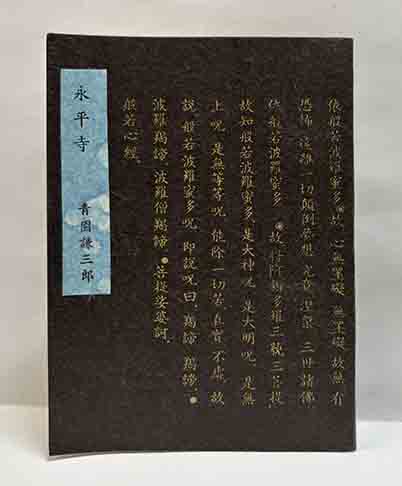 依般若波羅蜜多故 心無罣礙 無罣礙 故無有
恐怖 遠離一切顛倒夢想 究竟涅槃 三世諸佛
依般若波羅蜜多 故得阿耨多羅三藐三菩提
故知般若波羅蜜多 是大神呪 是大明呪 是無
上呪 是無等等呪 能除一切苦 真實不虚 故
説般若波羅蜜多呪 即説呪曰 羯諦 羯諦
波羅羯諦 波羅僧羯諦 菩提娑婆訶
般若心經
永平寺 青園謙三郎